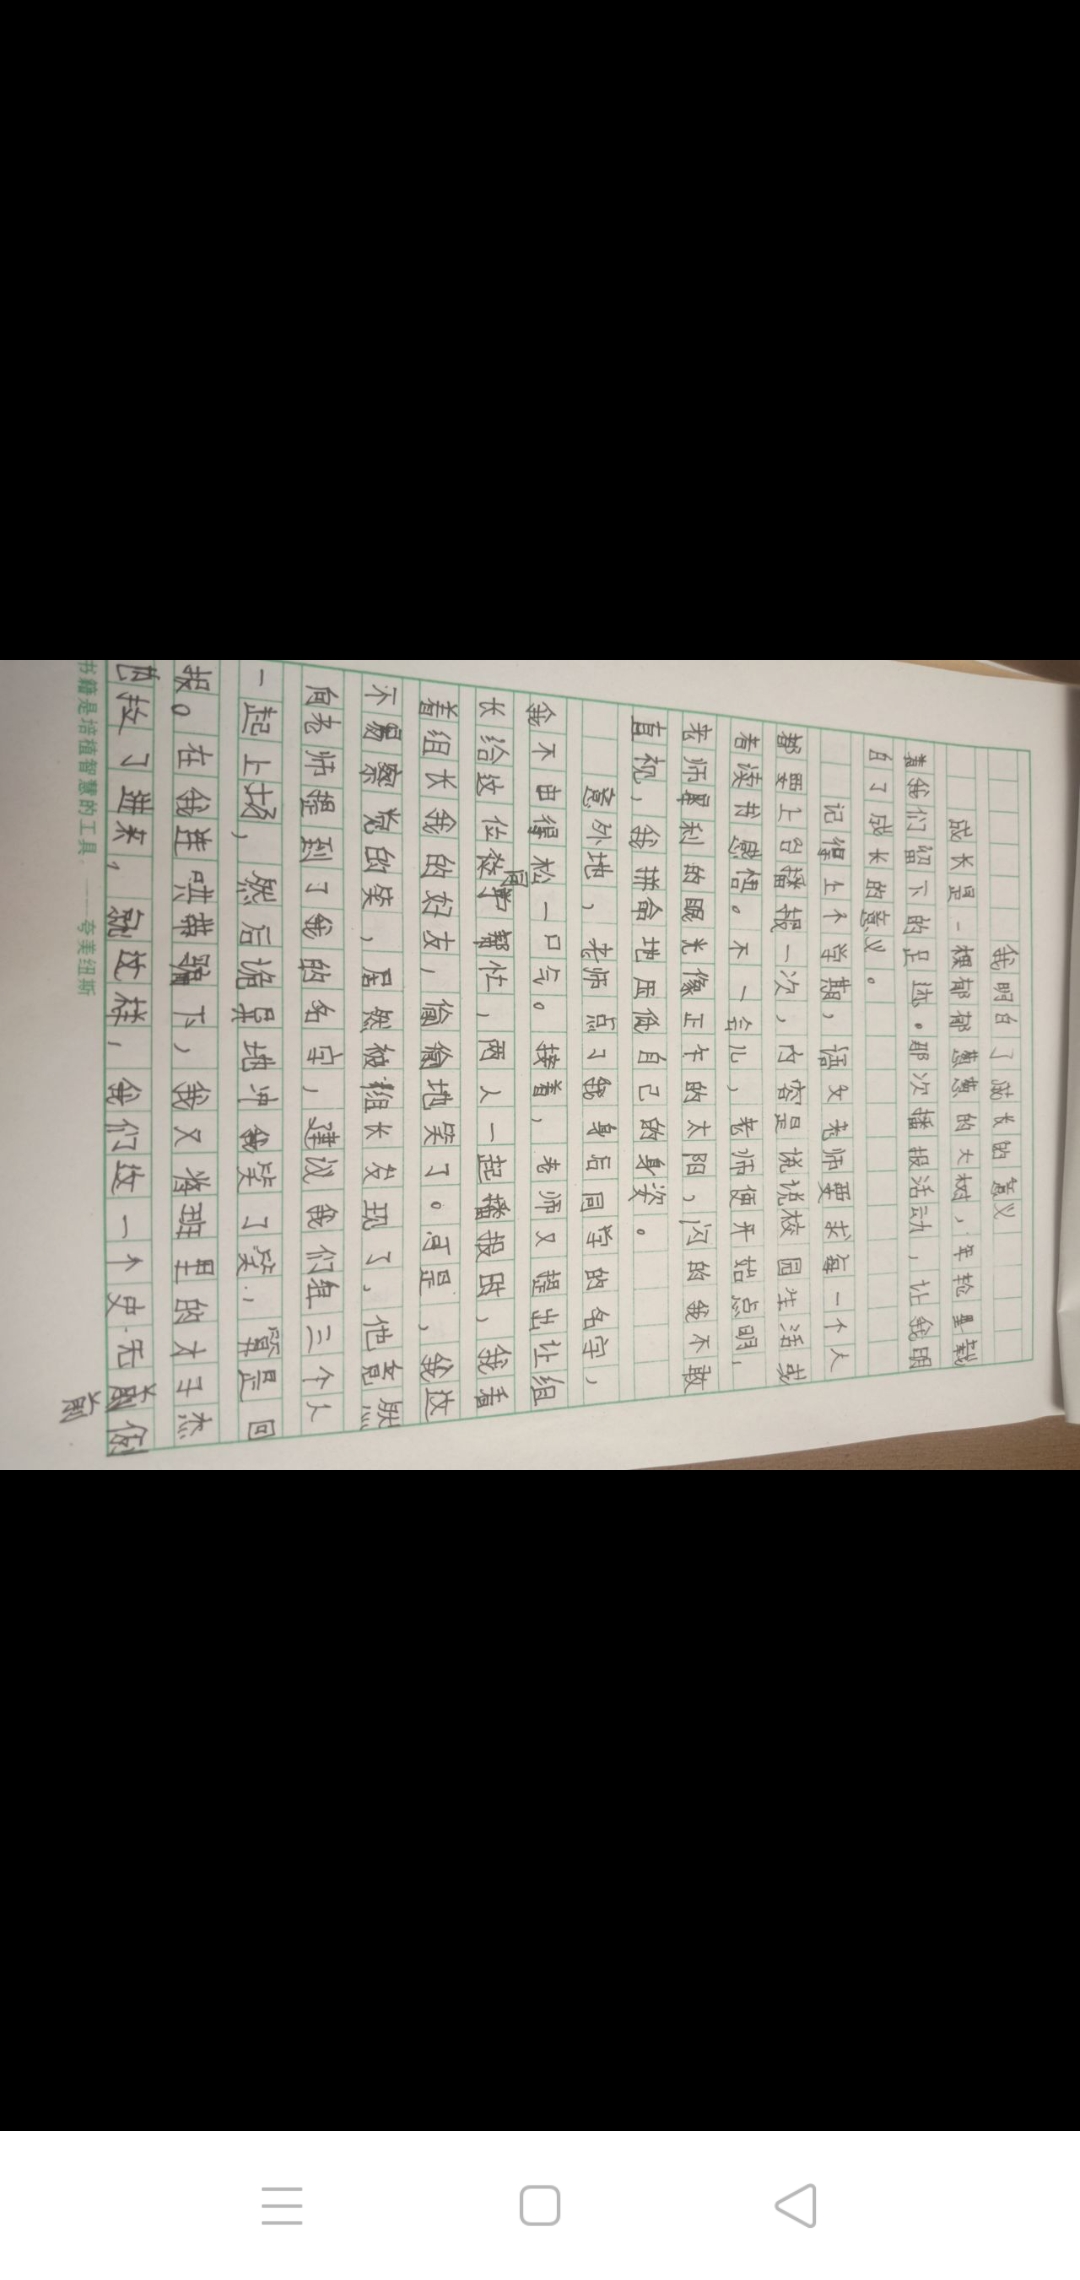 我明白了成长的意义
成长是一棵郁郁葱葱的大树，年轮里载
着我们留下的足迹。那次播报活动，让我明
白了成长的意义。
记得上个学期，语文老师要求每一个人
都要上台播报一次，内容是说说校园生活或
者读书感悟。不一会儿，老师便开始点明，
老师犀利的眼光像正午的太阳，闪的我不敢
直视，我拼命地压低自己的身姿。
意外地，老师点了我身后同学的名字，
我不由得松一口气。接着，老师又提出让组
长给这位同学帮忙，两人一起播报时，我看
着组长我的好友，偷偷地笑了。可是，我这
不易察觉的笑，居然被组长发现了，他竟然
向老师提到了我的名字，建议我们组三个人
一起上场，然后诡异地冲我笑了笑，算是回
报。在我连哄带骗下，我又将班里的太子杰
也拉了进来，就这样，我们这一个史无前例
书籍是培植智慧的工具。——夸美纽斯